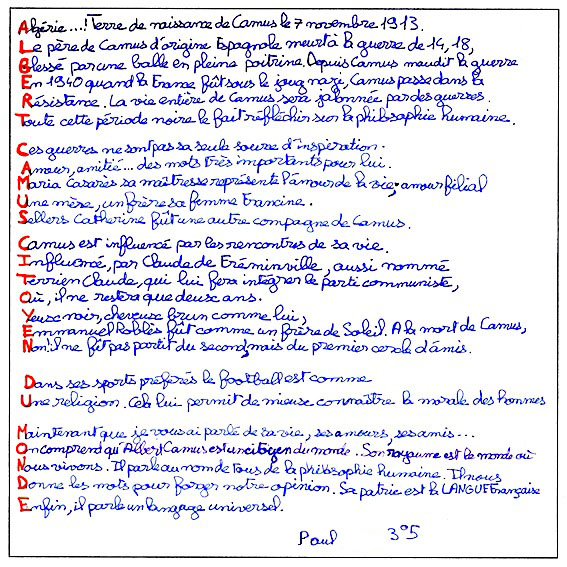 Algérie...! Terre de naissance de Camus le 7 novembre 1913.
Le père de Camus d'origine Espagnole meurt à la guerre de 14, 18,
Blessé par une balle en pleine poitrine. Depuis Camus maudit la guerre
En 1940 quand la France fût sous le joug nazi, Camus passe dans la
Résistance. La vie entière de Camus sera jalonnée par des guerres.
Toute cette période noire le fait réfléchir sur la philosophie humaine.
Ces guerres ne sont pas sa seule source d'inspiration.
Amour, amitié... des mots très importants pour lui.
Maria Casarès sa maîtresse représente l'amour de la vie, amour filial
Une mère, un frère sa femme Francine.
Sellers Catherine fût une autre compagne de Camus.
Camus est influencé par les rencontres de sa vie.
Influencé, par Claude de Fréminville, aussi nommé
Terrien Claude, qui lui fera intégrer le parti communiste,
Où, il ne restera que deux ans.
Yeux noir, cheveux brun comme lui,
Emmanuel Roblès fût comme un frère de Soleil. A la mort de Camus,
Non! Il ne fît pas partit du second, mais du premier cercle d'amis.
Dans ses sports préférés le football est comme
Une religion. Cela lui permit de mieux connaître la morale des hommes
Maintenant que je vous ai parlé de sa vie, ses amours, ses amis...
On comprend qu'Albert Camus est un citoyen du monde. Son royaume est le monde où
Nous vivons. Il parle au nom de tous de la philosophie humaine. Il nous
Donne les mots pour forger notre opinion. Sa patrie est la LANGUE Française
Enfin, il parle un langage universel.
Paul 3°5